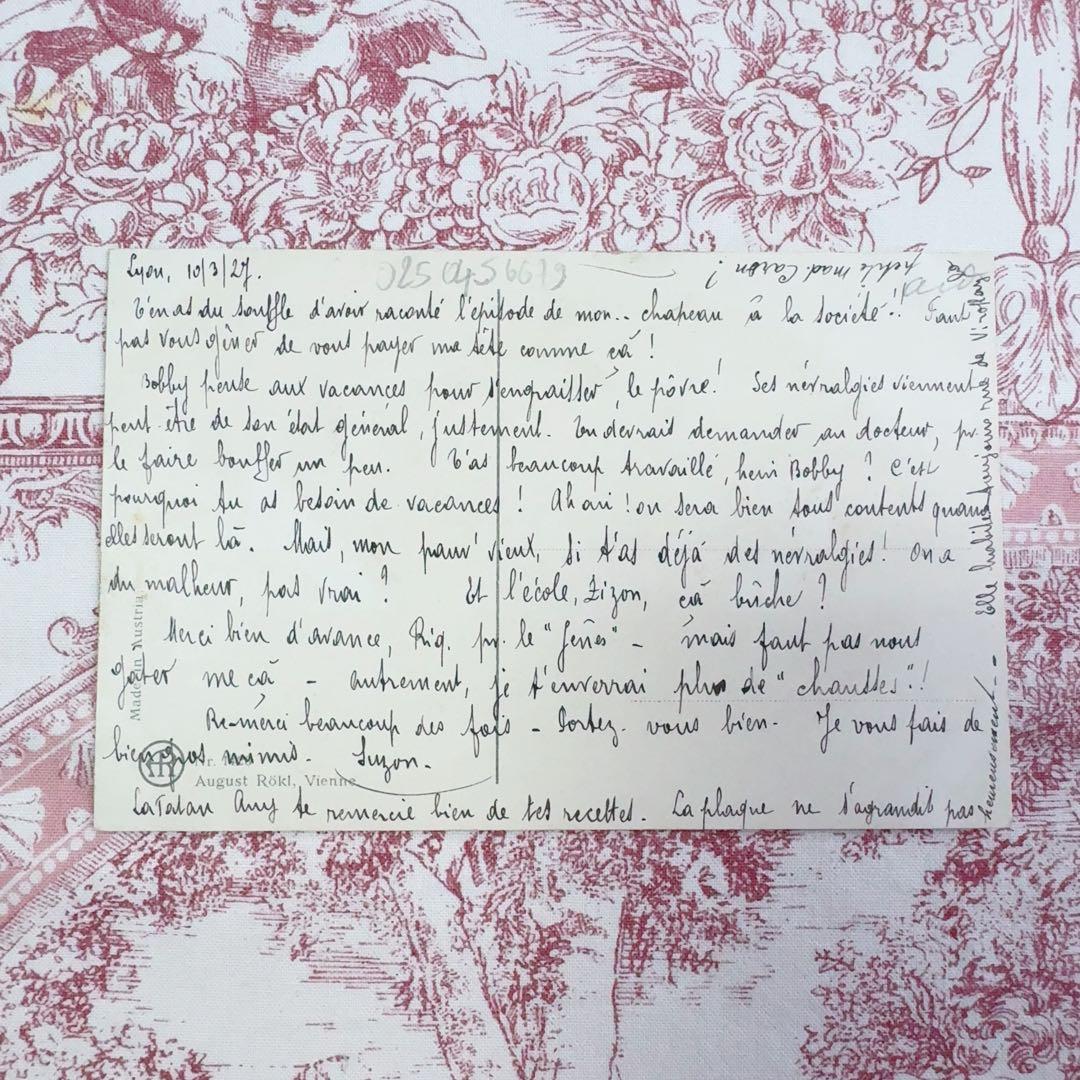 Lyon, 10/3/27.
025 045 6679
T'en as du souffle d'avoir raconté l'épisode de mon.. chapeau à la société!! Faut
pas vous gêner de vous payer ma tête comme çà !
Bobby pense aux vacances pour s'engraisser, le pôvre! Ses névralgies viennent
peut-être de son état général, justement. Tu devrais demander au docteur, pr.
le faire bouffer un peu. T'as beaucoup travaillé, hein Bobby ? C'est
pourquoi tu as besoin de vacances ! Ah oui ! on sera bien tous contents quand
elles seront là. Mais, mon pauv' vieux, si t'as déjà des névralgies! On a
du malheur, pas vrai ? Et l'école, Zizon, çà bûche ?
Merci bien d'avance, Riq. pr. le "Jênès" - mais faut pas nous
gâter me çà - autrement, je t'enverrai plus de "chausses"!!
Re-merci beaucoup des fois - Portez-vous bien. Je vous fais de
bien gros mimis. Suzon.
La Tatan Any te remercie bien de tes recettes. La plaque ne s'agrandit pas
heureusement.
Elle habite toujours rue de Viroflay
la petite mad. Caron ?
Made in Austria
August Rökl, Vienne